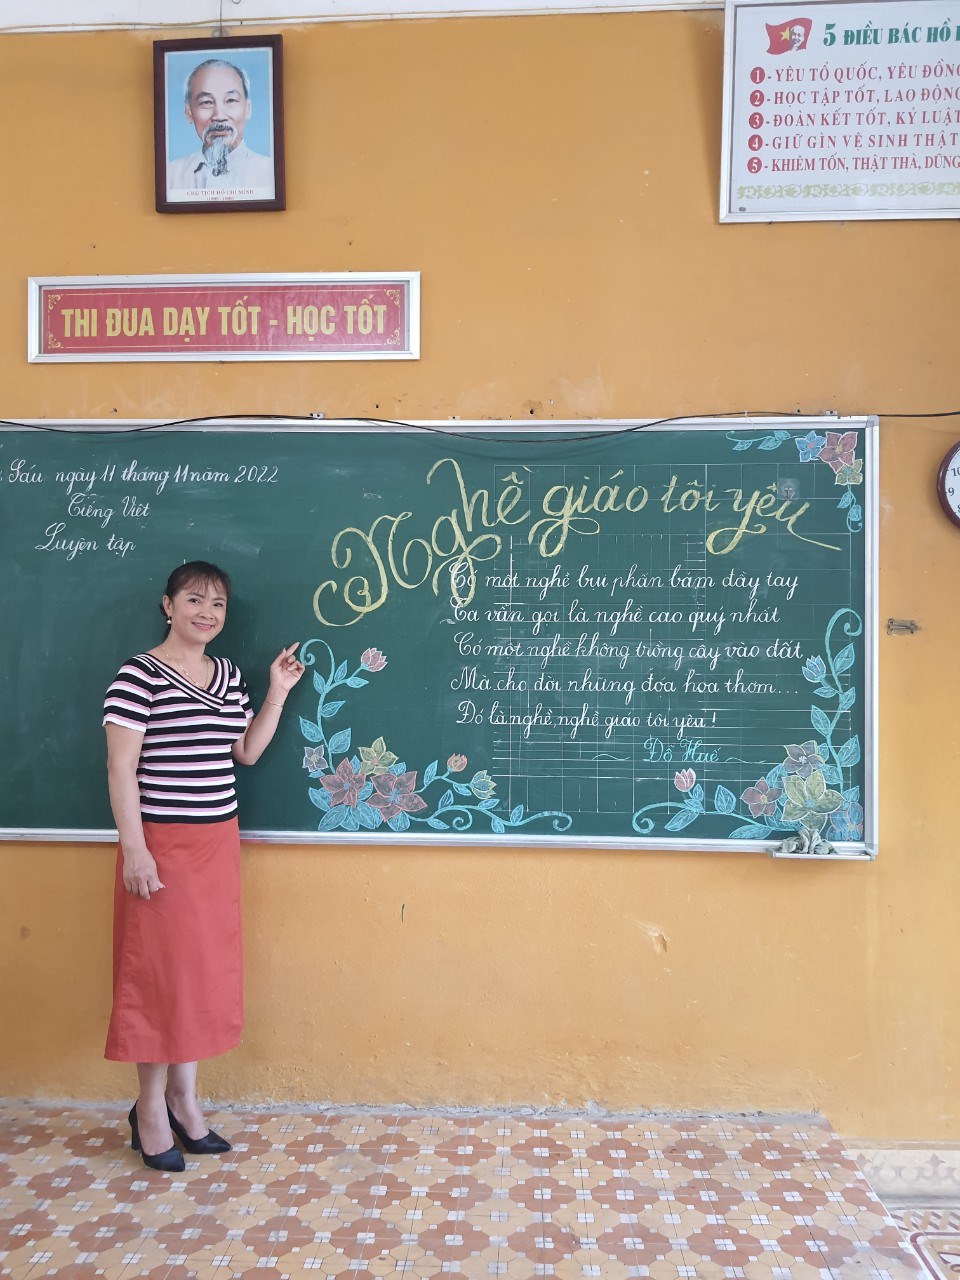 CHỦ TỊCH HỒ CHÍ MINH
5 ĐIỀU BÁC HỒ
1 - YÊU TỔ QUỐC, YÊU ĐỒNG
2 - HỌC TẬP TỐT, LAO ĐỘNG
3 - ĐOÀN KẾT TỐT, KỶ LUẬT
4 - GIỮ GÌN VỆ SINH THẬT
5 - KHIÊM TỐN, THẬT THÀ, DŨNG
THI ĐUA DẠY TỐT - HỌC TỐT
Sáu ngày 11 tháng 11 năm 2022
Tiếng Việt
Luyện tập
Nghề giáo tôi yêu
Có một nghề bụi phấn bám đầy tay
Ta vẫn gọi là nghề cao quý nhất
Có một nghề không trồng cây vào đất
Mà cho đời những đóa hoa thơm...
Đó là nghề, nghề giáo tôi yêu!
Đỗ Huế